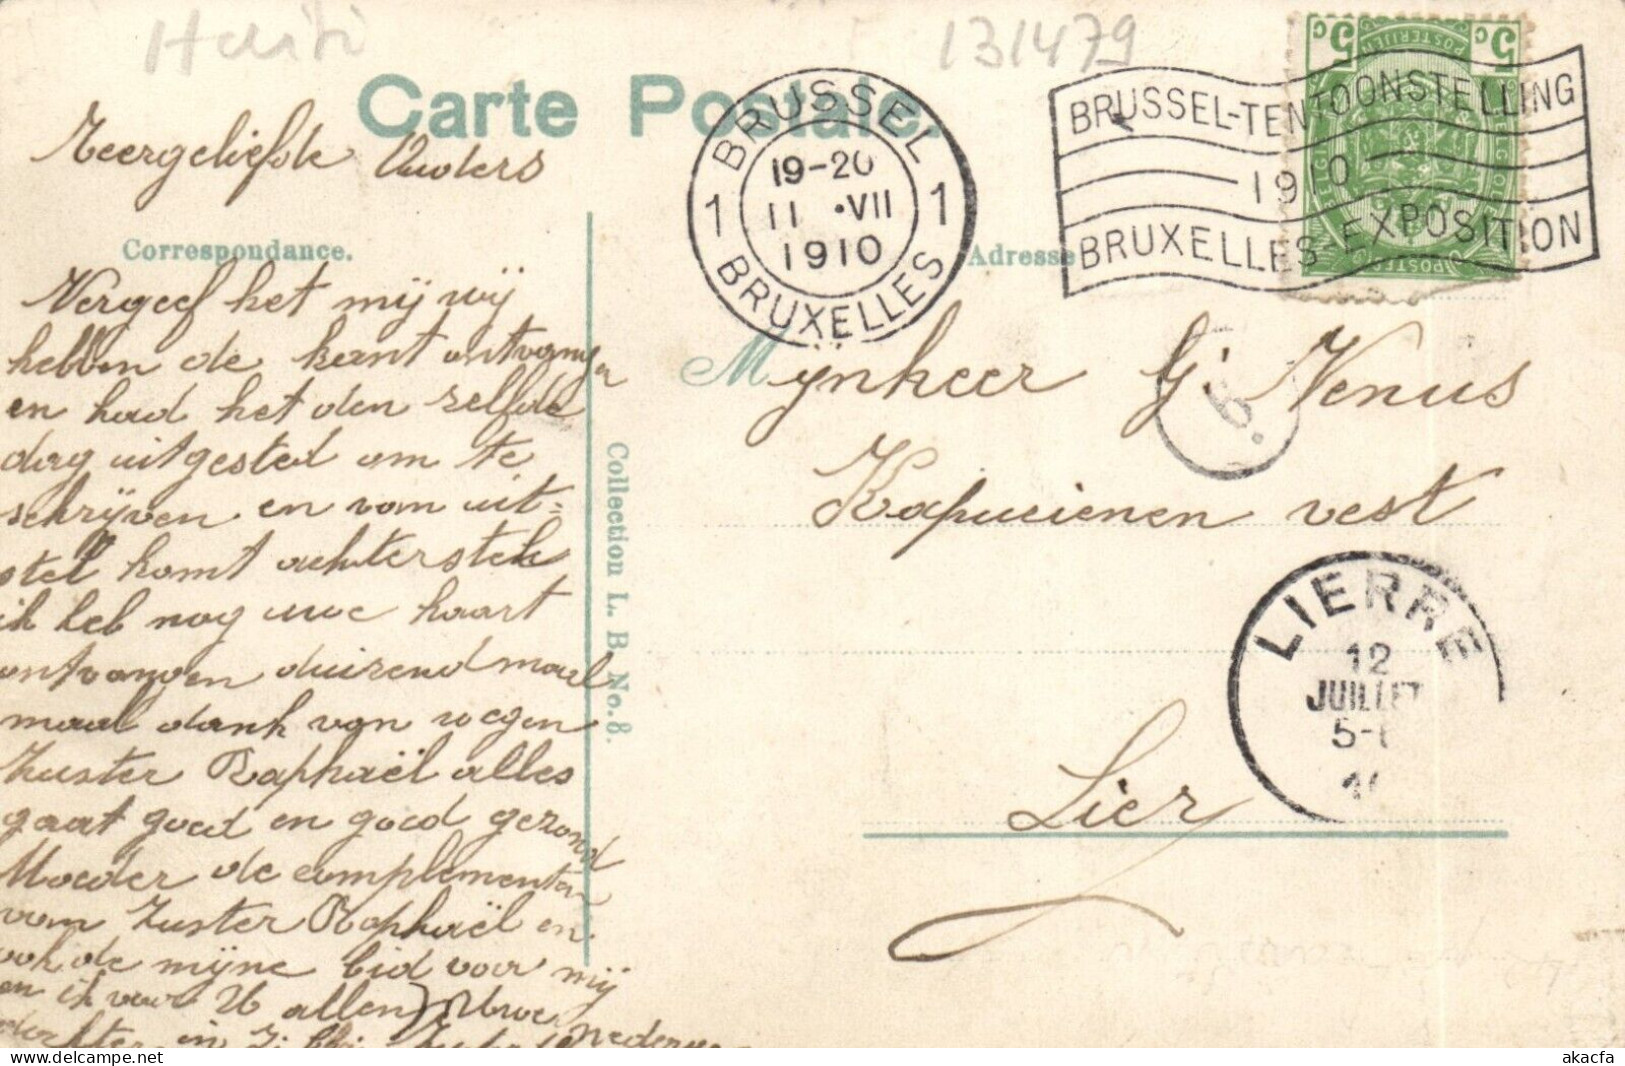 Haiti
131479
Carte Postale.
Zeergeliefde Ouders
BRUSSEL
1 19-20 1
11 ·VII
1910
BRUXELLES
BRUSSEL-TENTOONSTELLING
1910
BRUXELLES-EXPOSITION
5c 5c
POSTERIJEN
Correspondance.
Adresse
Vergeef het mij wij
hebben de kant ontvangen
en had het den zelfde
dag uitgesteld om te
schrijven en van uit=
stel komt achterstel
ik heb nog uwe kaart
ontvangen duizend maal
maal dank van wegen
Zuster Raphaël alles
gaat goed en goed gezond
Moeder de complementen
van Zuster Raphaël en
ook de mijne bid voor mij
en ik voor U allen Uwe nederige
dochter in
Collection L. B. No. 8.
Mijnheer G. Venus
6.
Kapucienen vest
Lier
LIERRE
12
JUILLET
5-
akacfa